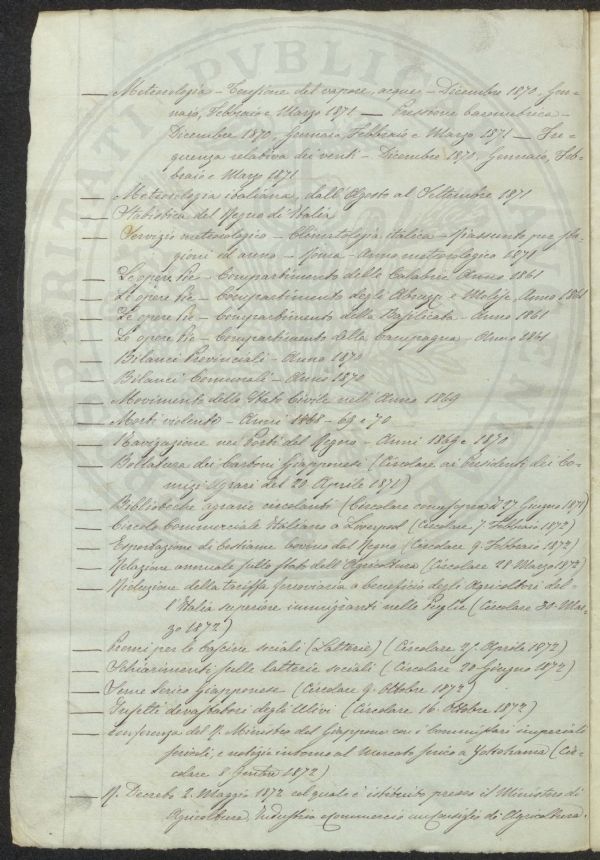 — Metereologia – Tensione del vapore, acqueo – Dicembre 1870, Gen-
naio, Febbraio e Marzo 1871 — Pressione barometrica –
Dicembre 1870, Gennaio, Febbraio e Marzo 1871 — Fre-
quenza relativa dei venti – Dicembre 1870, Gennaio, Feb-
braio e Marzo 1871
— Meteorologia italiana, dall'Agosto al Settembre 1871
— Statistica del Regno di Italia
— Servizio meteorologico – Climatologia italica – Riassunto per sta-
gioni ed anno – Roma – Anno meteorologico 1871
— Le opere Pie – Compartimento delle Calabrie Anno 1861
— Le opere Pie – Compartimento degli Abruzzi e Molise, Anno 1861
— Le opere Pie – Compartimento della Basilicata – Anno 1861
— Le opere Pie – Compartimento della Campagna – Anno 1861
— Bilanci Provinciali – Anno 1870
— Bilanci Comunali – Anno 1870
— Movimento dello Stato Civile nell'Anno 1869
— Morti violente – Anni 1868 – 69 e 70
— Navigazione nei Porti del Regno – Anni 1869 e 1870
— Bollatura dei Cartoni Giapponesi (Circolare ai Presidenti dei Co-
mizi Agrari del 20 Aprile 1871)
— Biblioteche agrarie circolanti (Circolare 27 Giugno 1871)
— Circolo Commerciale Italiano a Liverpool (Circolare 7 Febbraio 1872)
— Esportazione di bestiame bovino dal Regno (Circolare 9 Febbraio 1872)
— Relazione annuale sullo stato dell'Agricoltura (Circolare 28 Marzo 1872)
— Riduzione della tariffa ferroviaria a beneficio degli Agricoltori del-
l'Italia superiore immigranti nelle Puglie (Circolare 30 Mar-
zo 1872)
— Premi per le Cascine sociali (Latterie) (Circolare 25 Aprile 1872)
— Schiarimenti sulle latterie sociali (Circolare 20 Giugno 1872)
— Seme Serico Giapponese (Circolare 9 Ottobre 1872)
— Insetti devastatori degli Ulivi (Circolare 16 Ottobre 1872)
— Conferenza del R. Ministro del Giappone con i Commissari imperiali
sericoli, e notizie intorno al mercato serico a Yokohama (Cir-
colare 8 1872)
— R. Decreto 2 Maggio 1872 col quale è istituito presso il Ministero di
Agricoltura Industria e Commercio un consiglio di Agricoltura.